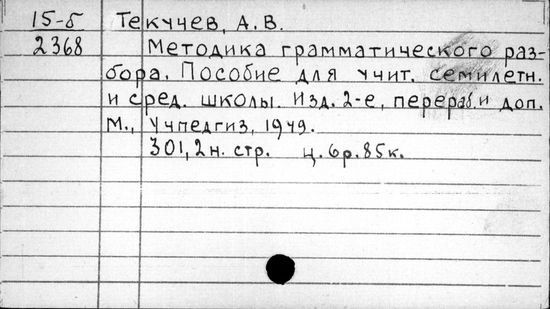 15-5 Текучев, А.В.
2368 Методика грамматического раз-
бора. Пособие для учит. семилетн.
и сред. школы. Изд. 2-е, перераб. и доп.
М., Учпедгиз, 1949.
301, 2 н. стр. ц. 6 р. 85 к.